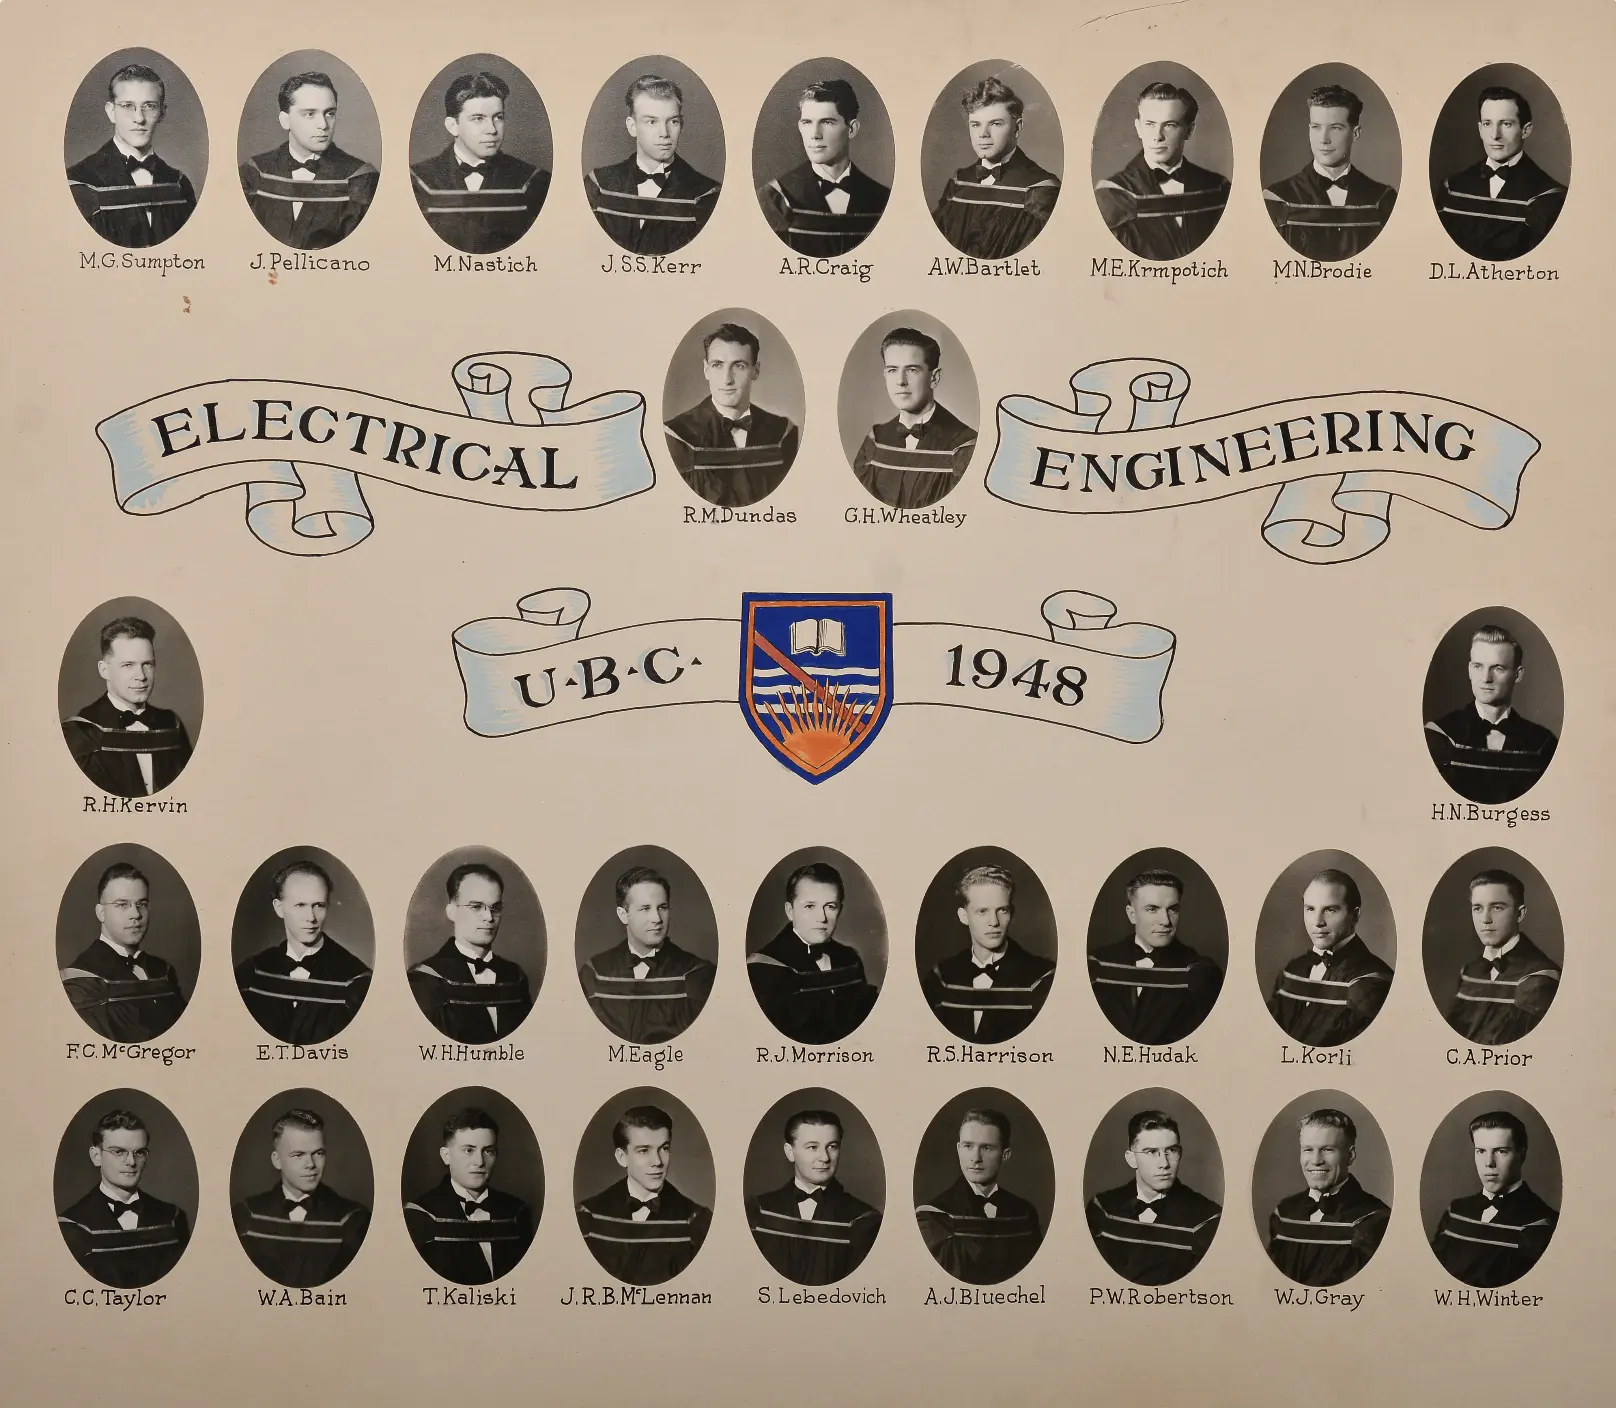 M.G.Sumpton J.Pellicano M.Nastich J.S.S.Kerr A.R.Craig A.W.Bartlet M.E.Krmpotich M.N.Brodie D.L.Atherton
ELECTRICAL ENGINEERING
R.M.Dundas G.H.Wheatley
U·B·C· 1948
R.H.Kervin H.N.Burgess
F.C.McGregor E.T.Davis W.H.Humble M.Eagle R.J.Morrison R.S.Harrison N.E.Hudak L.Korli C.A.Prior
C.C.Taylor W.A.Bain T.Kaliski J.R.B.McLennan S.Lebedovich A.J.Bluechel P.W.Robertson W.J.Gray W.H.Winter